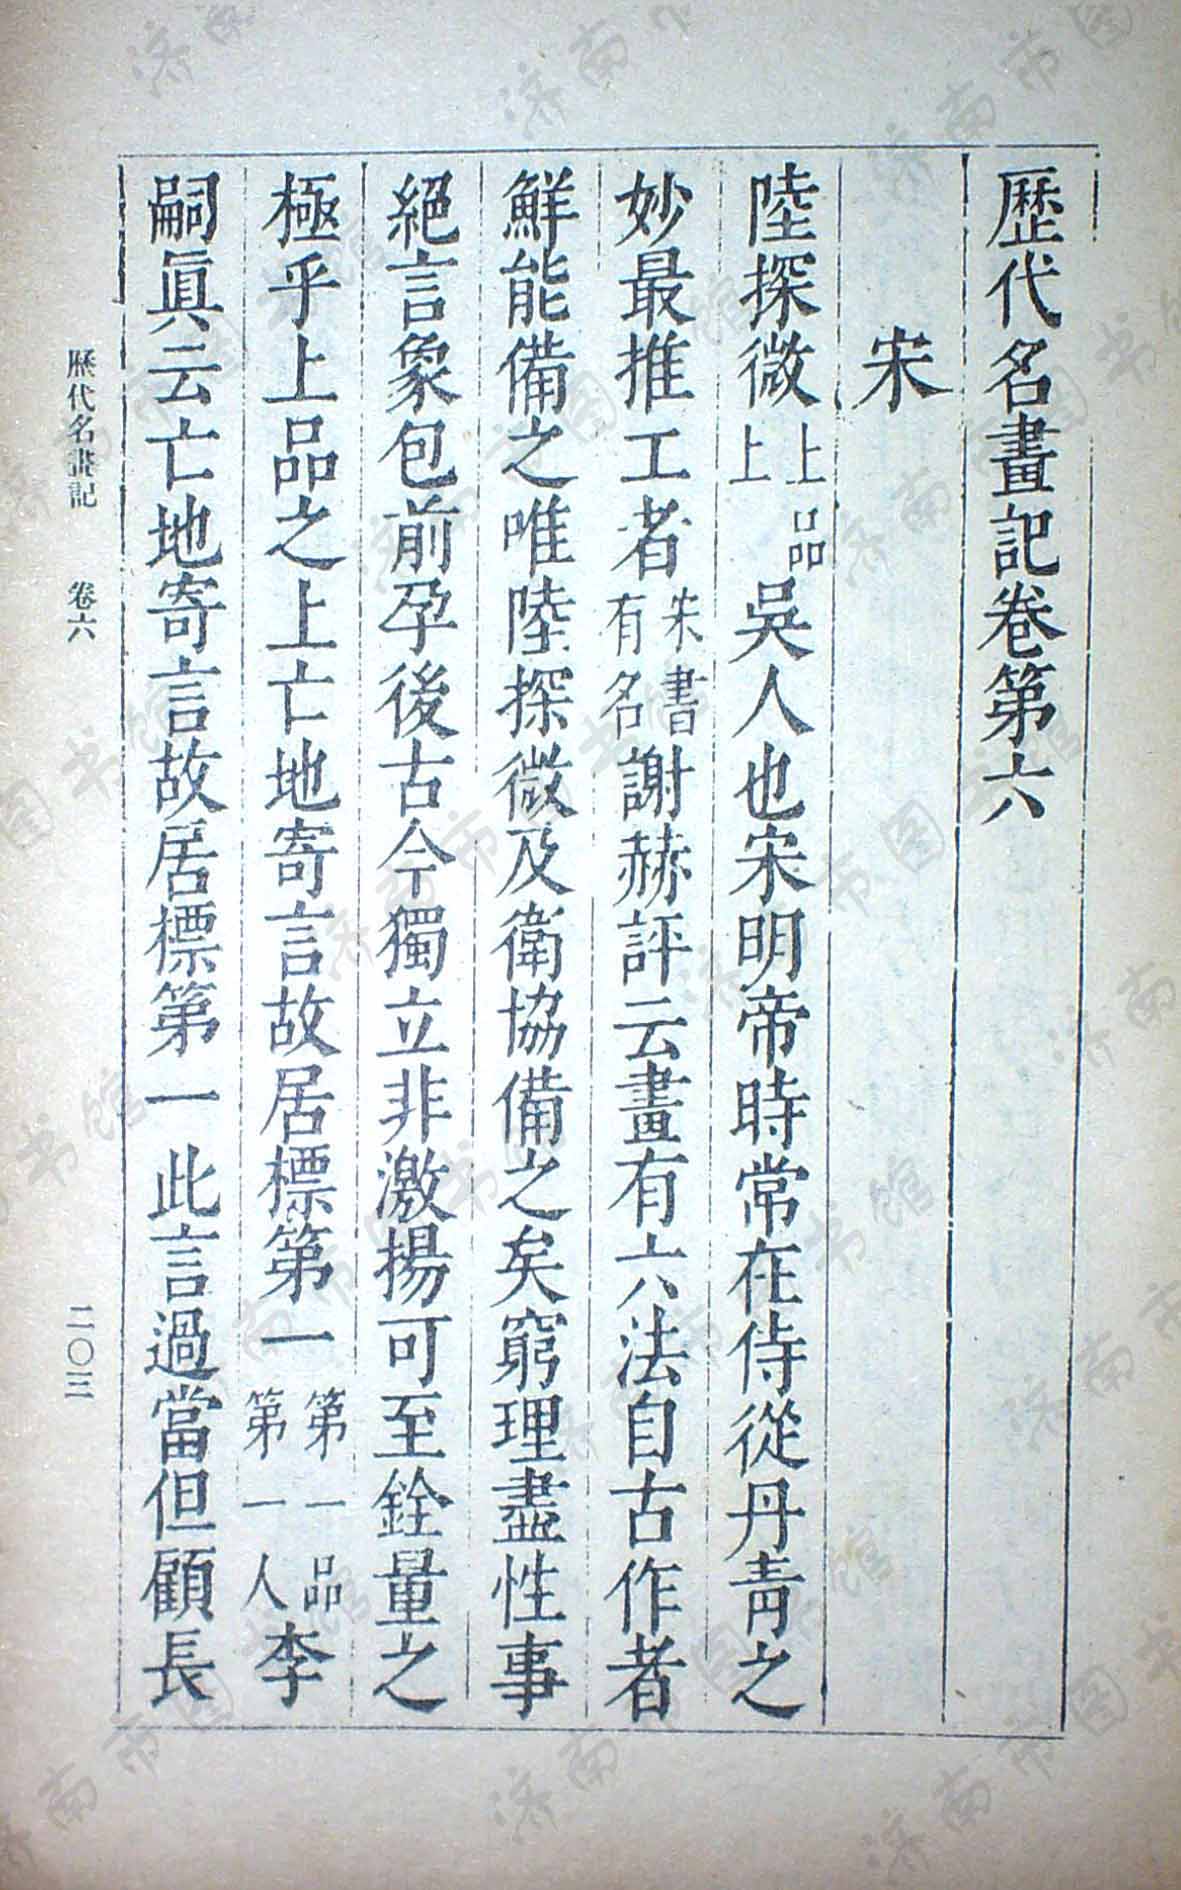 歷代名畫記卷第六
宋
陸探微上品上吳人也宋明帝時常在侍從丹青之
妙最推工者宋書有名謝赫評云畫有六法自古作者
鮮能備之唯陸探微及衛協備之矣窮理盡性事
絕言象包前孕後古今獨立非激揚可至銓量之
極乎上品之上亡地寄言故居標第一第一品第一人李
嗣眞云亡地寄言故居標第一此言過當但顧長
歷代名畫記 卷六 二〇三
濟南市图书馆